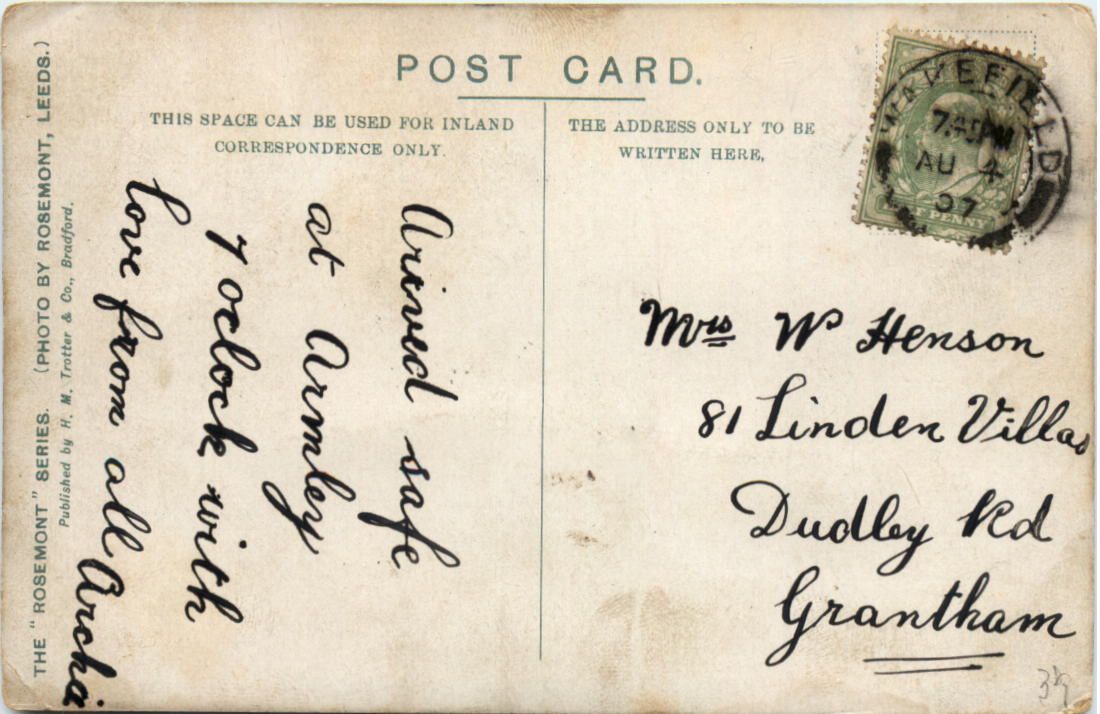 POST CARD.
THIS SPACE CAN BE USED FOR INLAND
CORRESPONDENCE ONLY.
THE ADDRESS ONLY TO BE
WRITTEN HERE,
WAKEFIELD
AU 4
07
PENNY
Arived safe
at Armley
7 oclock with
love from all
Archie
Mrs W Henson
81 Linden Villas
Dudley Rd
Grantham
THE "ROSEMONT" SERIES. (PHOTO BY ROSEMONT, LEEDS.)
Published by H. M. Trotter & Co., Bradford.